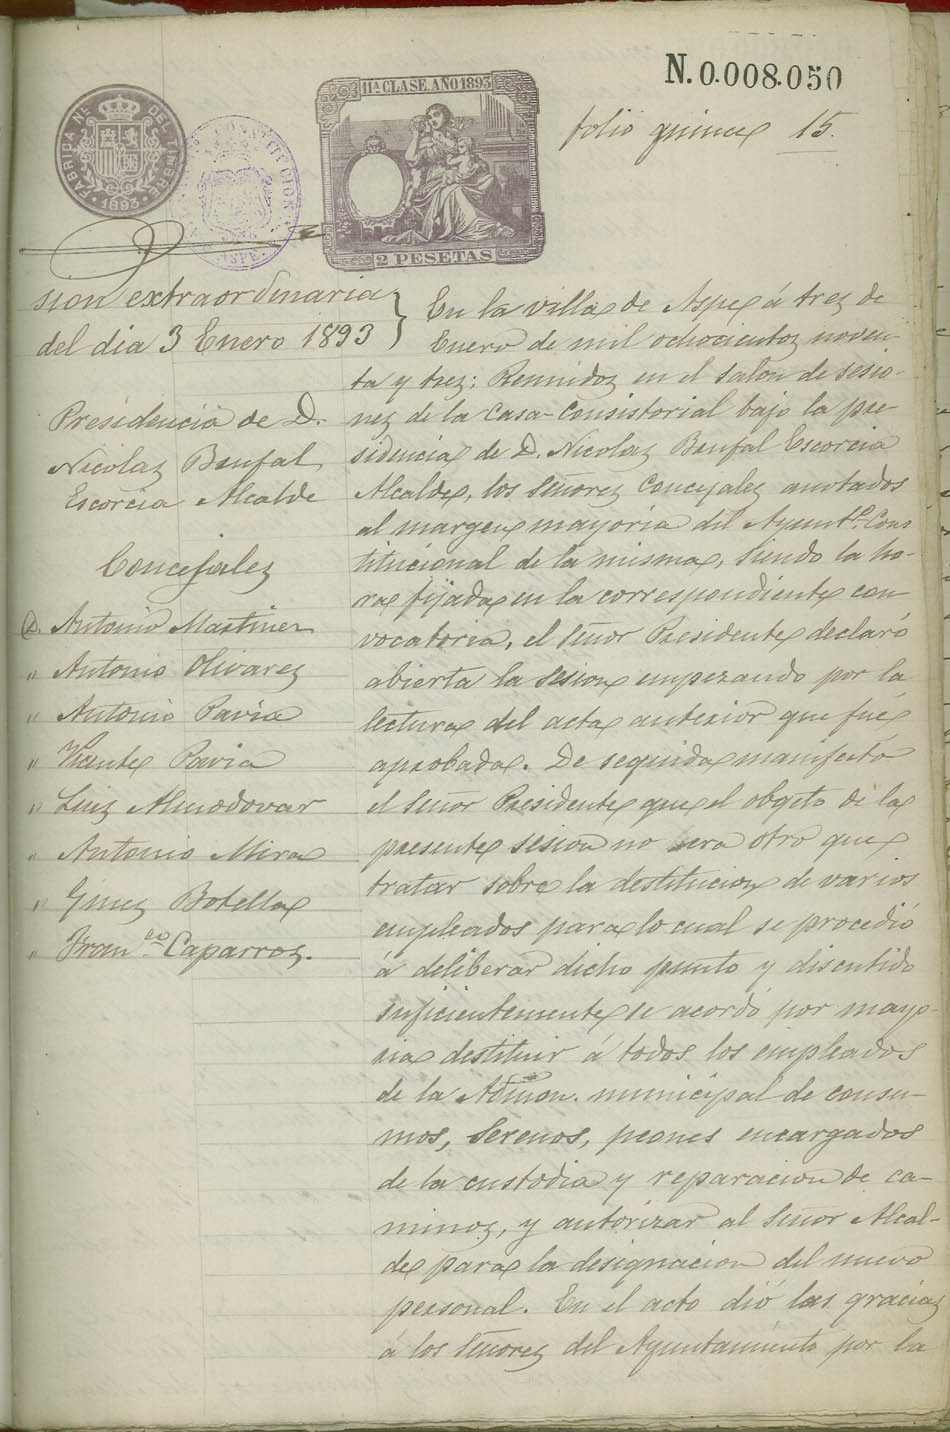 N. 0.008.050
folio quince 15.
FABRICA Nal. DEL TIMBRE
1893
CONSTITUCION
ASPE
11ª CLASE. AÑO 1893
2 PESETAS
sion extraordinaria
del dia 3 Enero 1893
Presidencia de D.
Nicolas Benfal
Escorcia Alcalde
Concejales
D. Antonio Martinez
" Antonio Olivares
" Antonio Pavia
" Vicente Pavia
" Luis Almodovar
" Antonio Mira
" Gines Botella
" Fran.co Caparros.
En la villa de Aspe á tres de
Enero de mil ochocientos noven-
ta y tres; Reunidos en el salon de sesio-
nes de la Casa-Consistorial bajo la pre-
sidencia de D. Nicolas Benfal Escorcia
Alcalde, los Señores Concejales anotados
al margen mayoria del Ayunt.º Cons
titucional de la misma, siendo la ho-
ra fijada en la correspondiente con-
vocatoria, el Señor Presidente declaró
abierta la sesion empezando por la
lectura del acta anterior que fué
aprobada. De seguida manifestó
el Señor Presidente que el obgeto de la
presente sesion no era otro que
tratar sobre la destitucion de varios
empleados para lo cual se procedió
á deliberar dicho punto y discutido
suficientemente se acordó por mayo-
ria destituir á todos los empleados
de la Admon. municipal de consu-
mos, Serenos, peones encargados
de la custodia y reparacion de ca-
minos, y autorizar al Señor Alcal-
de para la designacion del nuevo
personal. En el acto dió las gracias
á los Señores del Ayuntamiento por la